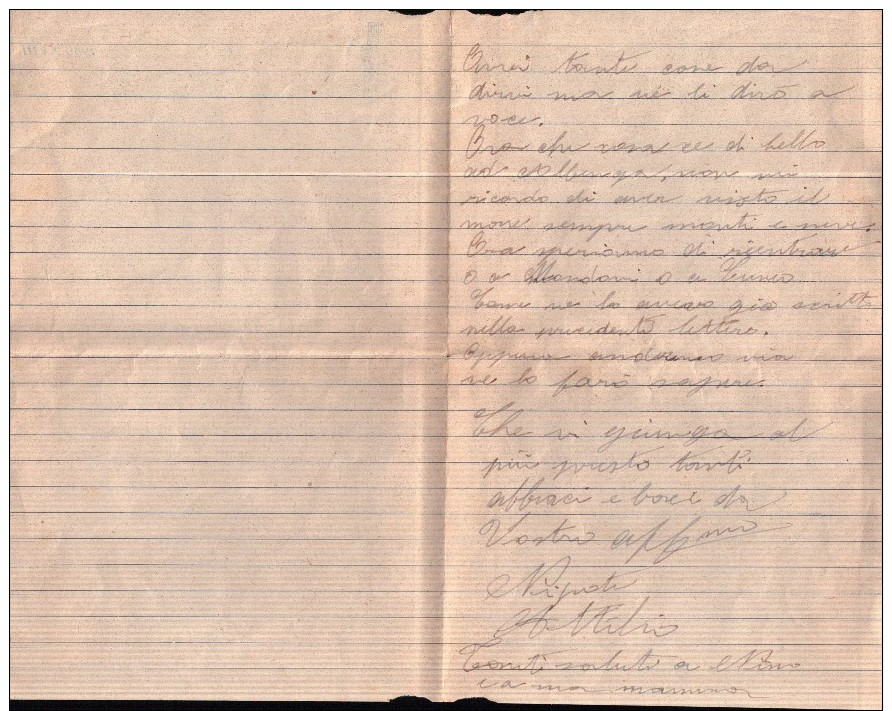 Avrei tante cose da
dirvi ma ve li dirò a
voce.
Ora che cosa ce di bello
ad Albenga, non mi
ricordo di aver visto il
mare sempre monti e neve.
Ora speriamo di rientrare
o a Mondovi o a Cuneo
Come ve lo avevo gia scritto
nella precedente lettera.
Appena andremo via
ve lo farò sapere.
Che vi giunga al
più presto tanti
abbraci e baci da
Vostro affmo
Nipote
Attilio
Tanti saluti a Nino
e a mamma